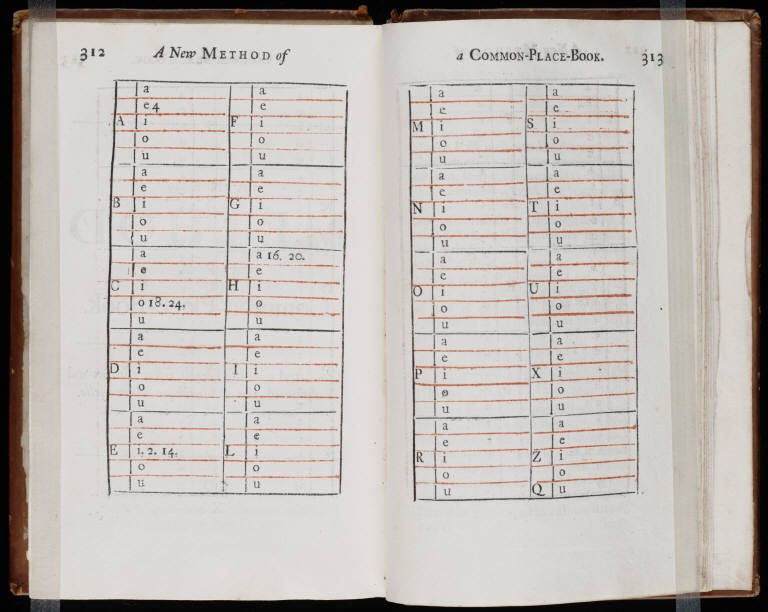 312 A New METHOD of
a a
e 4 e
A i F i
o o
u u
a a
e e
B i G i
o o
u u
a a 16. 20.
e e
C i H i
o 18. 24. o
u u
a a
e e
D i I i
o o
u u
a a
e e
E i. 2. 14. L i
o o
u u
a COMMON-PLACE-BOOK. 313
a a
e e
M i S i
o o
u u
a a
e e
N i T i
o o
u u
a a
e e
O i U i
o o
u u
a a
e e
P i X i
o o
u u
a a
e e
R i Z i
o o
u Q u